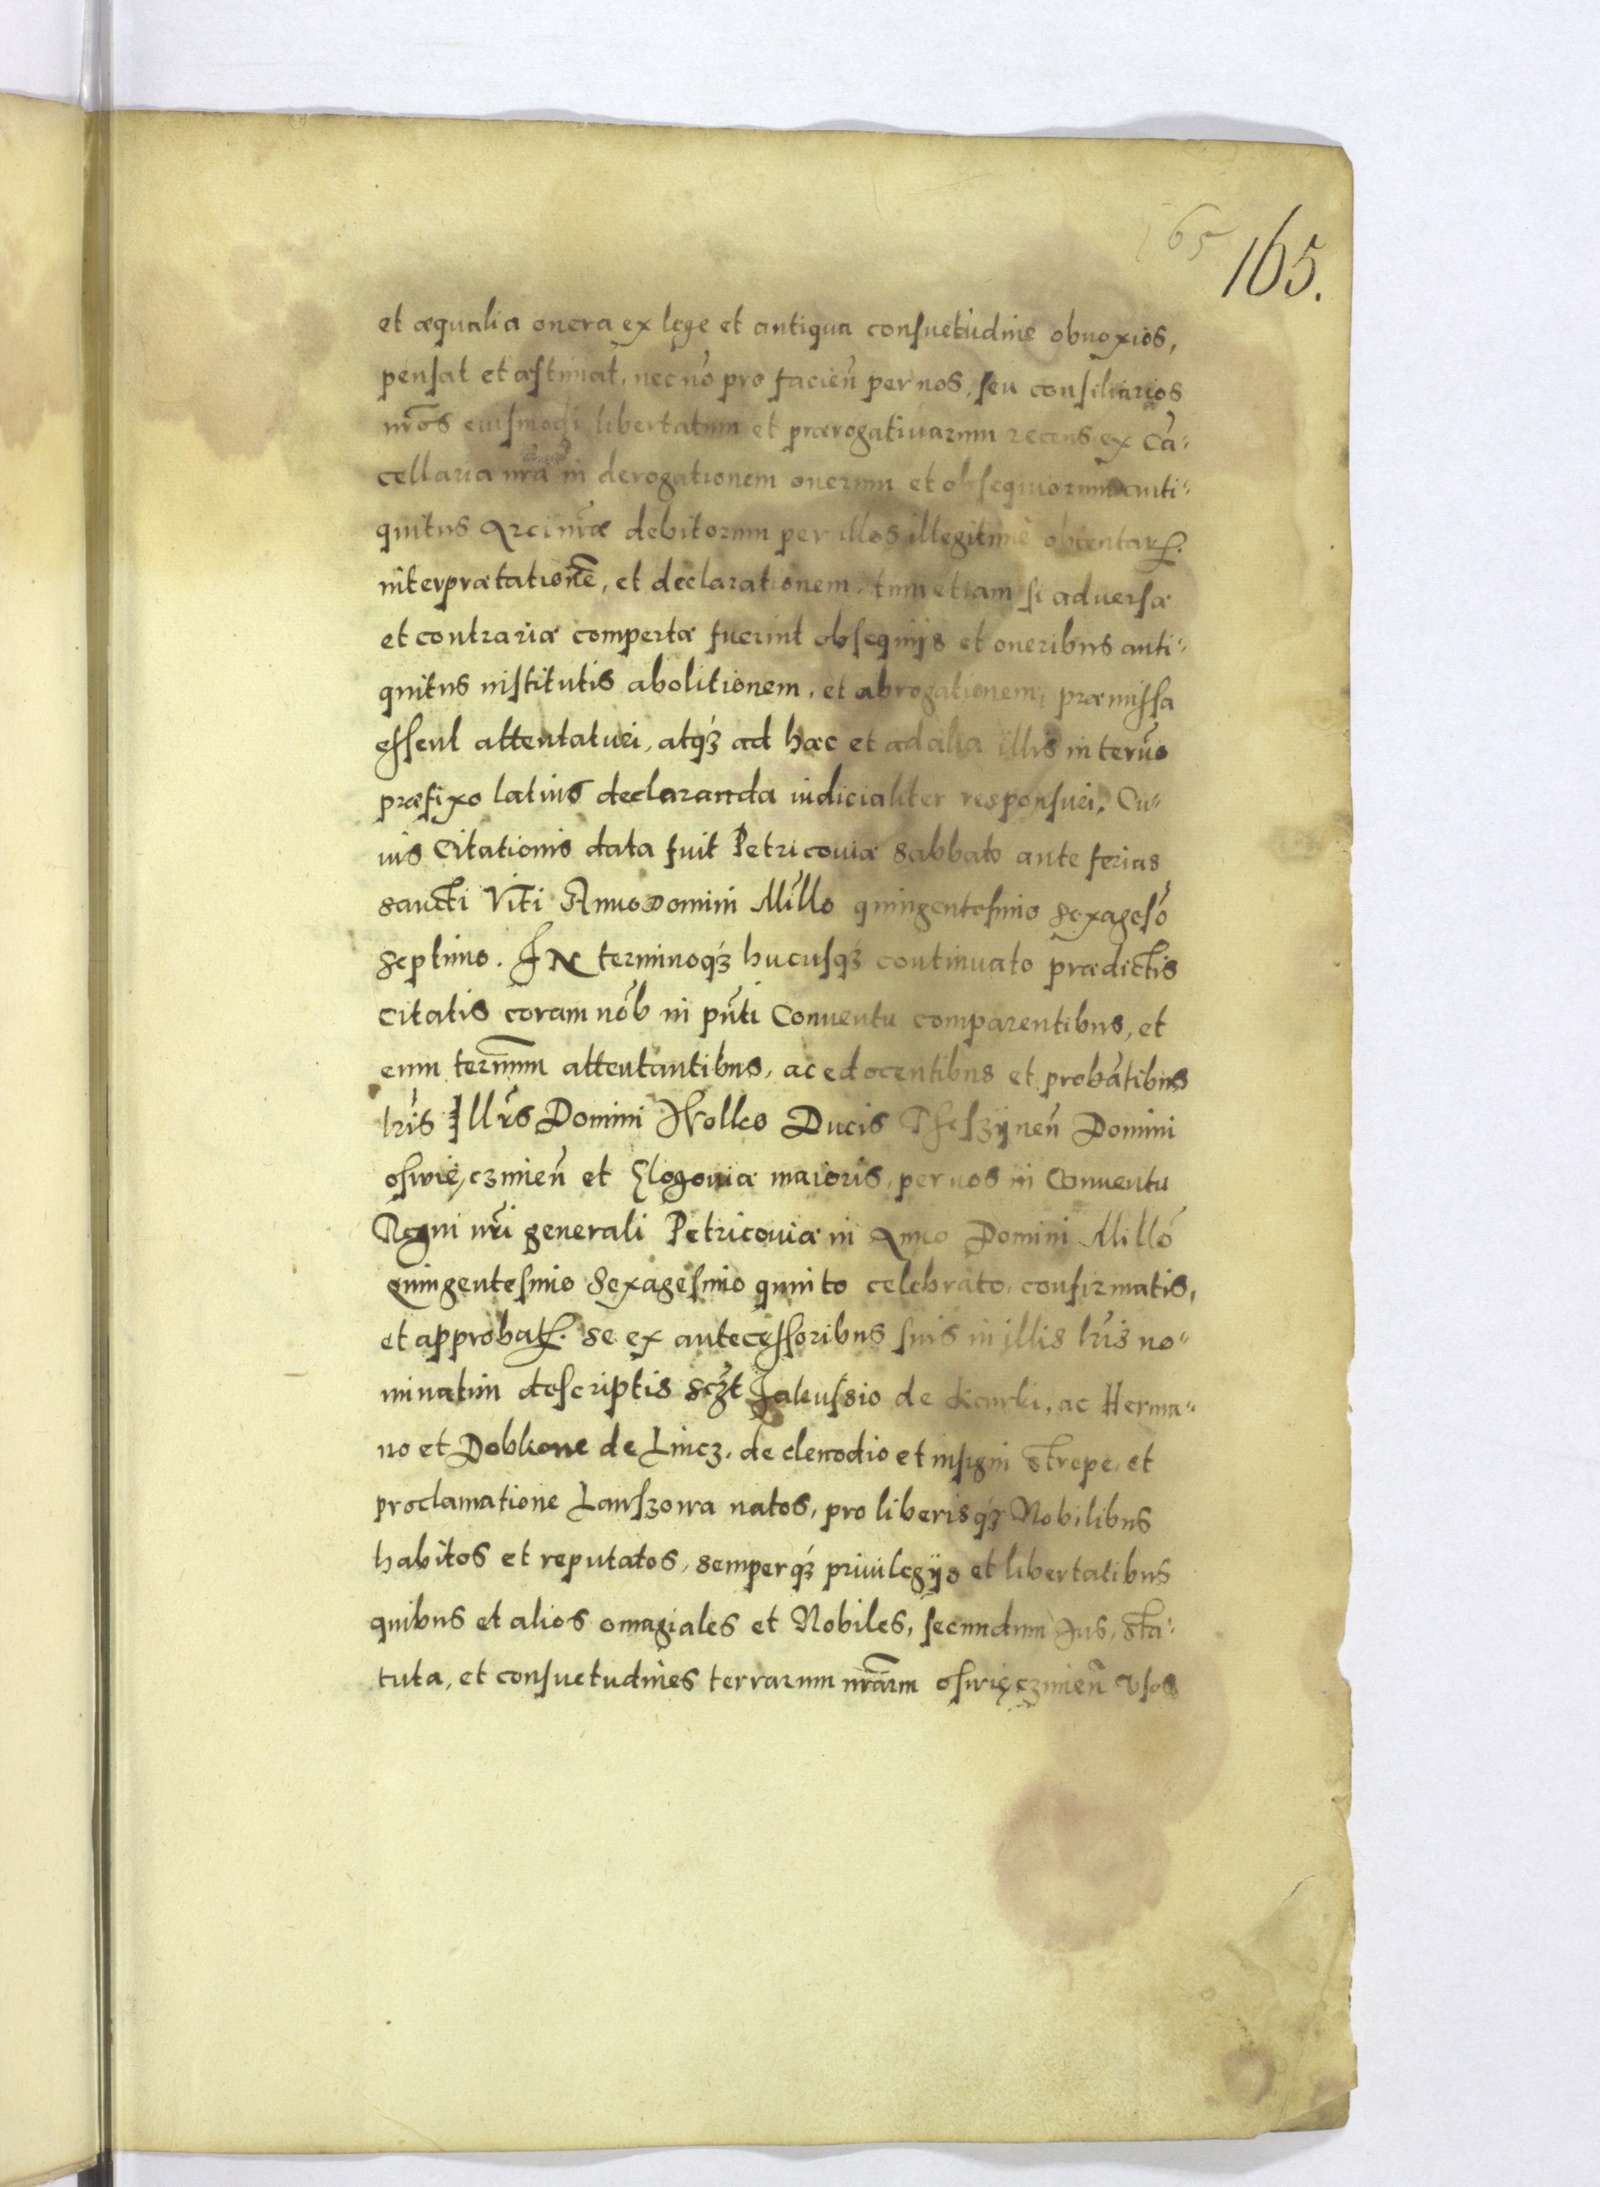 165
165.
et æqualia onera ex lege et antiqua consuetudine obnoxios,
pensat et æstimat, necnō pro facień per nos, seu consiliarios
nr̃os eiusmodi libertatum et prærogativarum recens ex Cā-
cellaria nr̃a in derogationem onerum et obsequiorum anti-
quitus Arci nr̃æ debitorum per illos illegitimè obtentar̃.
interprætationē̃, et declarationem, tum etiam si adversæ
et contrariæ compertæ fuerint obsequijs et oneribus anti-
quitus institutis abolitionem, et abrogationem, præmissa
essent attentaturi, atq́ʒ ad hæc et ad alia illis in terḿo
præfixo latius declaranda iudicialiter responsuri. Cu-
ius Citationis data fuit Petricoviæ sabbato ante ferias
sancti Viti Anno Domini Mil̃lo quingentesimo sexagesō
septimo. IN terminoq́ʒ hucusq́ʒ continuato prædictis
citatis coram nõb in pñti Conventu comparentibus, et
eum termĩnum attentantibus, ac edocentibus et probātibus
lr̃is Ill̃r̃s Domini Wolko Ducis Thesʒyneń Domini
oswięcʒimień et Glogoviæ maioris, per nos in Conventu
Regni nr̃i generali Petricoviæ in Anno Domini Millō
quingentesimo sexagesimo quinto celebrato, confirmatis,
et approbatʳ. se ex antecessoribus suis in illis lr̃is no-
minatim descriptis scʒ̃t Jakussio de
ac Herma-
no et Dobkone de Lincʒ, de clenodio et insigni Strepe, et
proclamatione Lawsʒowa natos, pro liberisq́ʒ Nobilibus
habitos et reputatos, semperq́ʒ privilegijs et libertatibus
quibus et alios omagiales et Nobiles, secundum Jus, sta-
tuta, et consuetudines terrarum nr̃arum oswięcʒimień Usos